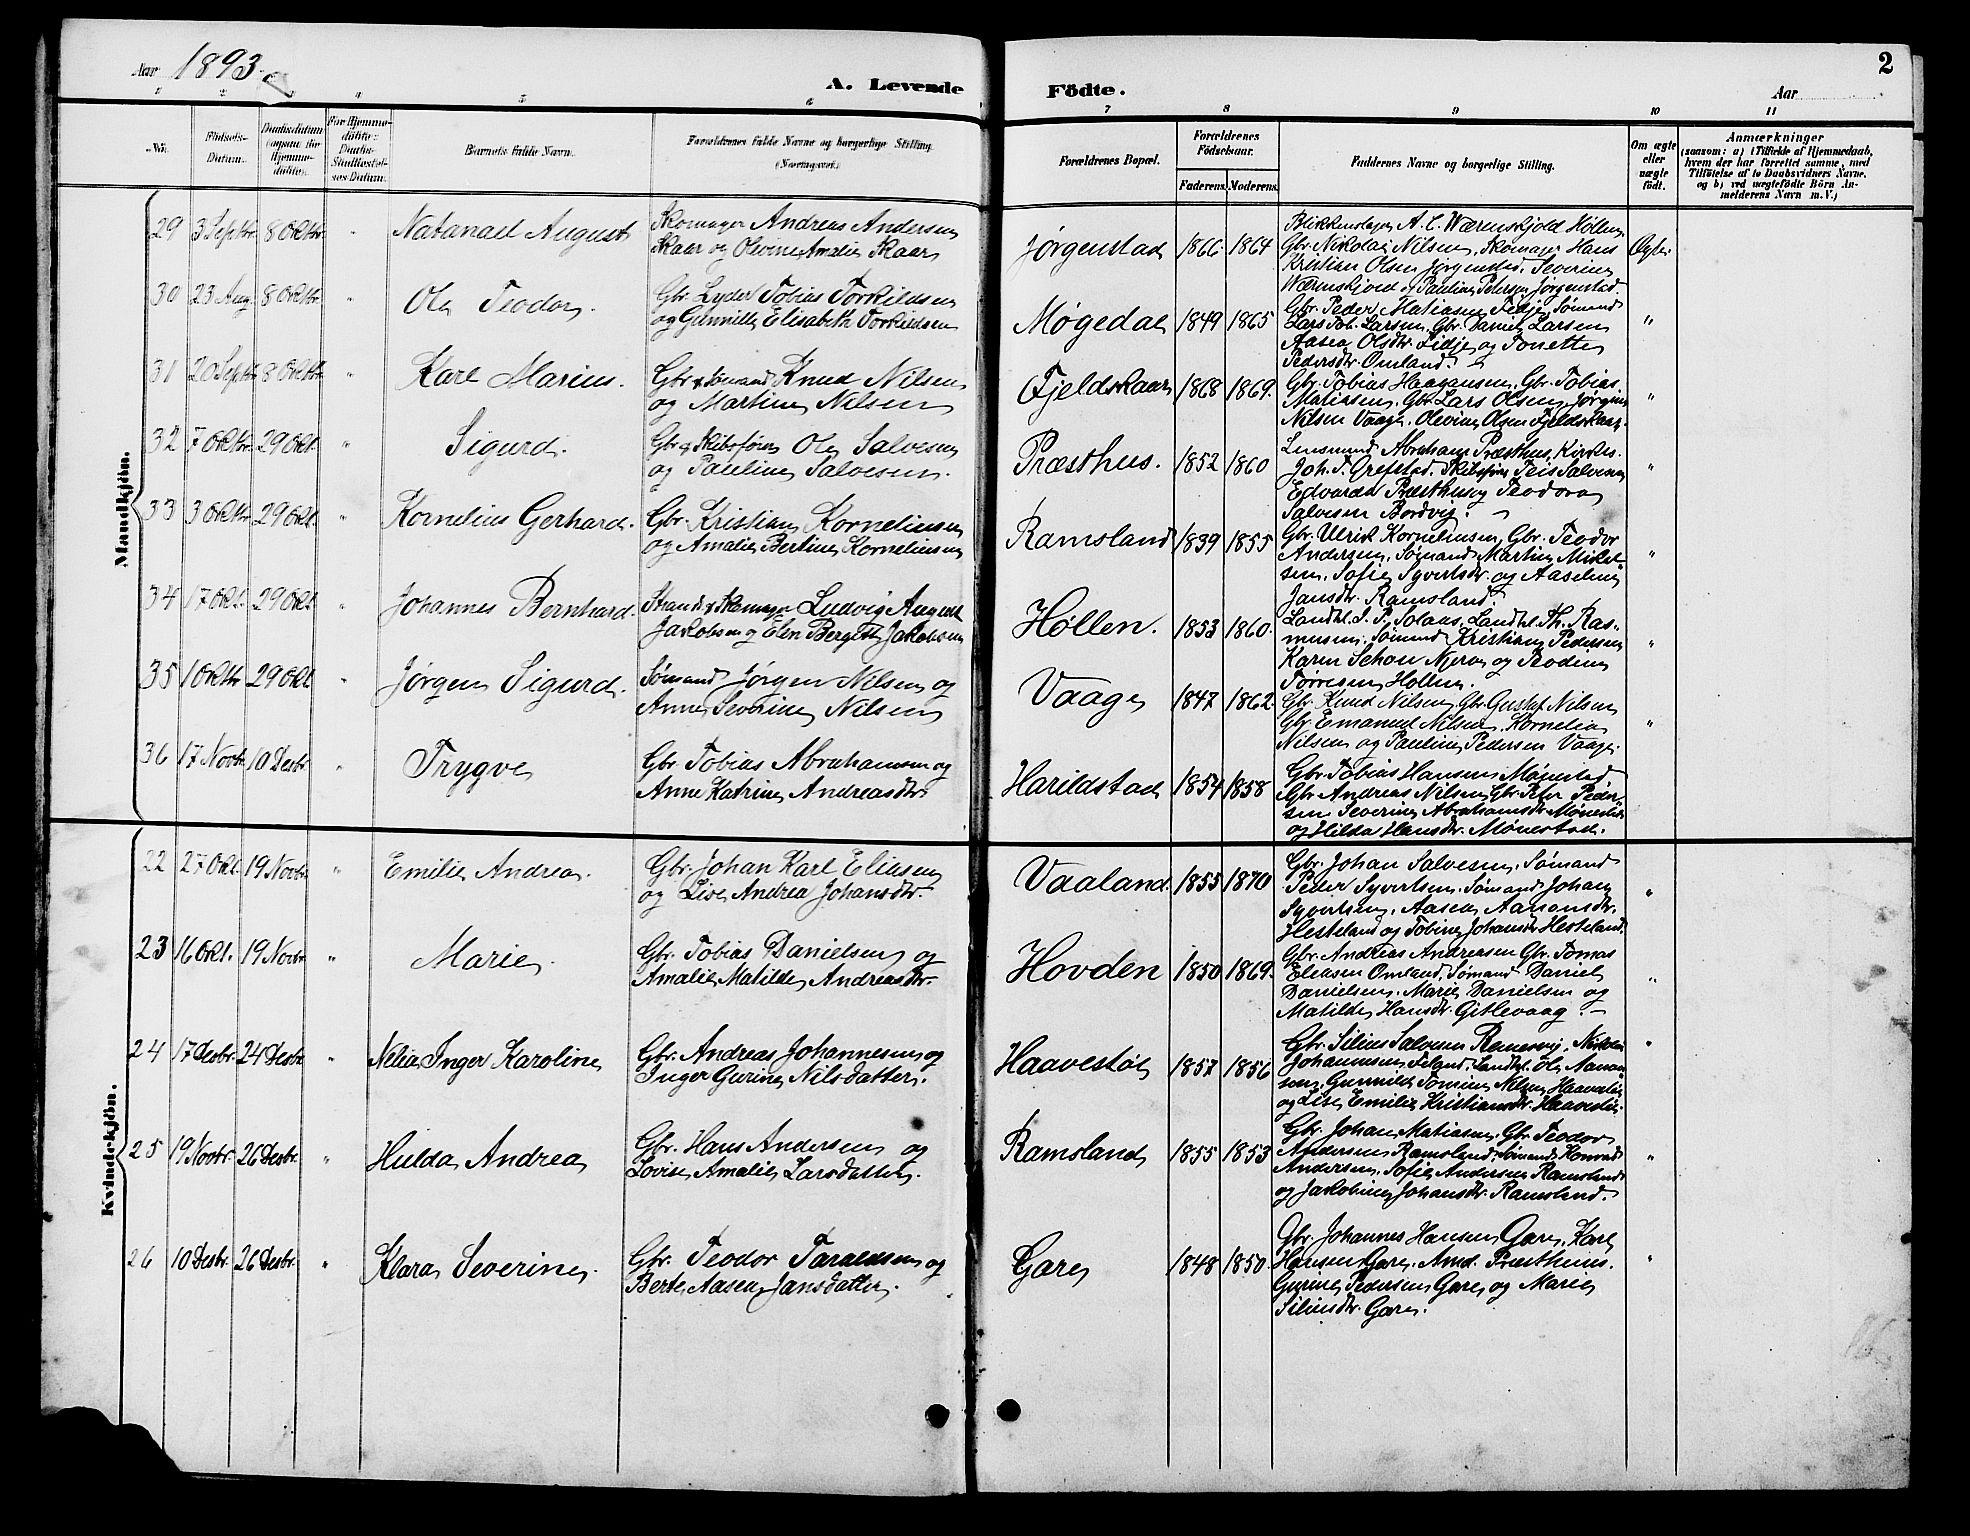 Aar 1893.
A. Levende Födte.
Aar
2
1 2 3 4 5 6 7 8 9 10 11
No. Födsels-Datum. Daabsdatum (ogsaa for Hjemmedöbte). For Hjemmedöbte: Daabs-Stadfæstelses-Datum. Barnets fulde Navn. Forældrenes fulde Navne og borgerlige Stilling. (Næringsvei.)
Forældrenes Bopæl. Forældrenes Födselsaar. Faderens. Moderens. Faddernes Navne og borgerlige Stilling. Om ægte eller uægte födt. Anmærkninger
(saasom: a) i Tilfælde af Hjemmedaab,
hvem der har forrettet samme, med
Tilföielse af to Daabsvidners Navne,
og b) ved uægtefödte Börn An-
melderens Navn m.V.)
Mandkjön.
29 3 Septbr 8 Oktbr " Natanael August
Skomager Andreas Andersen
Skaar og Olevine Amalie Skaar
Jørgenstad 1866 1864
Blikkenslager A. C. Wærenskjold Høllen,
Gbr. Nikolai Nilsen, Skomager Hans
Kristian Olsen Jørgenstad, Severine
Wærenskjold og Pauline Petersen Jørgenstad.
Ægte
30 23 Aug 8 Oktbr " Ole Teodor
Gbr. Lyder Tobias Torkildsen
og Gunnille Elisabeth Torkildsen
Møgedal 1849 1865
Gbr. Peder Matiasen Tidje, Sømand
Lars Tob. Larsen, Gbr. Daniel Larsen
Aasea Olsdtr. Lidje og Tonette
Pedersdtr. Omland.
"
31 20 Septbr 8 Oktbr " Karl Marius.
Gbr & Sømand Knud Nilsen
og Martine Nilsen
Fjeldskaar 1868 1869.
Gbr. Tobias Haagansen, Gbr. Tobias
Matiasen, Gbr. Lars Olsen, Jørgine
Nilsen Vaage, Olevine Olsen Fjeldskaar.
"
32 7 Oktbr 29 Okt. " Sigurd.
Gbr & Skibsfører Ole Salvesen
og Pauline Salvesen.
Præsthus. 1852 1860
Lensmand Abrahams Præsthus, Kirkes.
Joh. T. Grefstad, Skibsfører Teis Salvesen
Edvarda Præsthus og Teodora
Salvesen Bordvig.
"
33 3 Oktbr 29 Okt. " Kornelius Gerhard.
Gbr. Kristian Korneliusen
og Amalie Bertine Korneliusen
Ramsland 1839 1855
Gbr. Ulrik Korneliusen, Gbr. Teodor
Andersen, Sømand Martin Mikal-
sen, Sofie Syvertsdtr. og Aaseline
Jansdtr. Ramsland
"
34 17 Okt. 29 Okt " Johannes Bernhard.
Strands. & Skomager Ludvig August
Jakobsen og Elen Bergete Jakobsen
Høllen. 1853 1860.
Landhl. J. P. Solaas, Landhl. Th. Ras-
musen, Sømand Kristian Pedersen
Karen Schou Njerve og Teodine
Torresen Høllen.
"
35 1 Oktbr 29 Okt " Jørgen Sigurd.
Sømand Jørgen Nilsen og
Anne Severine Nilsen
Vaage 1847 1862.
Gbr. Knud Nilsen, Gbr. Gustaf Nilsen
Gbr. Emanuel Nilsen, Kornelia
Nilsen og Pauline Pedersen Vaage.
"
36 17 Novbr 10 Desbr " Trygve
Gbr. Tobias Abrahamsen og
Anne Katrine Andreasdtr
Harildstad 1854 1858
Gbr. Tobias Hansen Mønestad.
Gbr. Andreas Nilsen, Gbr. Peter Peder-
sen Severine Abrahamsdtr. Mønestad
og Hilda Hansdtr. Mønestad.
Kvindekjön.
22 27 Okt. 19 Novbr " Emilie Andrea.
Gbr. Johan Karl Eliasen
og Lise Andrea Johansdtr.
Vaaland. 1855 1870
Gbr. Johan Salvesen, Sømand
Peder Syvertsen, Sømand Johan
Syvertsen, Aasea Aanonsdtr.
Hesteland og Tobine Johansdtr Hesteland.
"
23 16 Okt. 19 Novbr " Marie.
Gbr. Tobias Danielsen og
Amalie Matilde Andreasdtr.
Hovden 1850 1869.
Gbr. Andreas Andreasen Gbr. Tomas
Eliasen Omland, Sømand Daniel
Danielsen, Marie Danielsen og
Matilde Hansdtr. Gitlevaag. —
"
24 17 Desbr. 24 Desbr " Nelia Inger Karoline
Gbr. Andreas Johannesen og
Inger Gurine Nilsdatter.
Haavestøl 1857 1856
Gbr. Silius Salvesen Ramsvig, Nikolai
Johannesen Feland, Landhl. Ole Aanon-
sen, Gunnild Tomine Nilsen Haavestøl
og Lise Emilie Kristiansdtr. Haavestøl.
"
25 19 Novbr. 26 Desbr. " Hulda Andrea
Gbr. Hans Andersen og
Lovise Amalie Larsdatter.
Ramsland 1855 1853
Gbr. Johan Matiasen, Gbr. Teodor
Andersen Ramsland, Sømand Konrad
Andersen, Sofie Andersen Ramsland
og Jakobine Johansdtr. Ramsland.
"
26 10 Desbr. 26 Desbr. " Klara Severine.
Gbr. Teodor Taraldsen og
Berte Aasea Jansdatter.
Gare 1848 1850.
Gbr. Johannes Hansen Gare, Karl
Hansen Gare, Amd. Præsthuus.
Gurine Pedersen Gare og Marie
Siliusdtr. Gare.
"